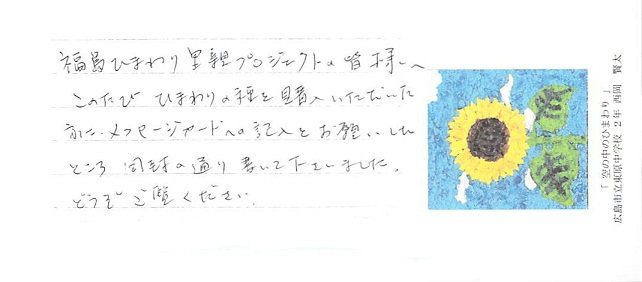 福島ひまわり里親プロジェクトの皆様へ
このたび ひまわりの種を購入いただいた
方に、メッセージカードへの記入をお願いした
ところ 同封の通り書いて下さいました。
どうぞご覧ください。
「空の中のひまわり」
広島市立東原中学校 2年 西岡 賢太